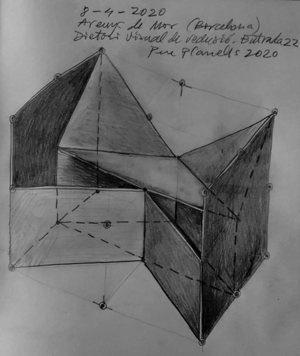 8-4-2020
Arenys de Mar (Barcelona)
Dietari Visual de reclusió. Entrada 22
Pere Planells 2020